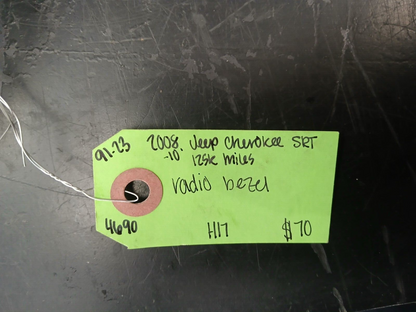 91-23 2008. Jeep Cherokee SRT
-10 125k miles
radio bezel
4690 H17 $70